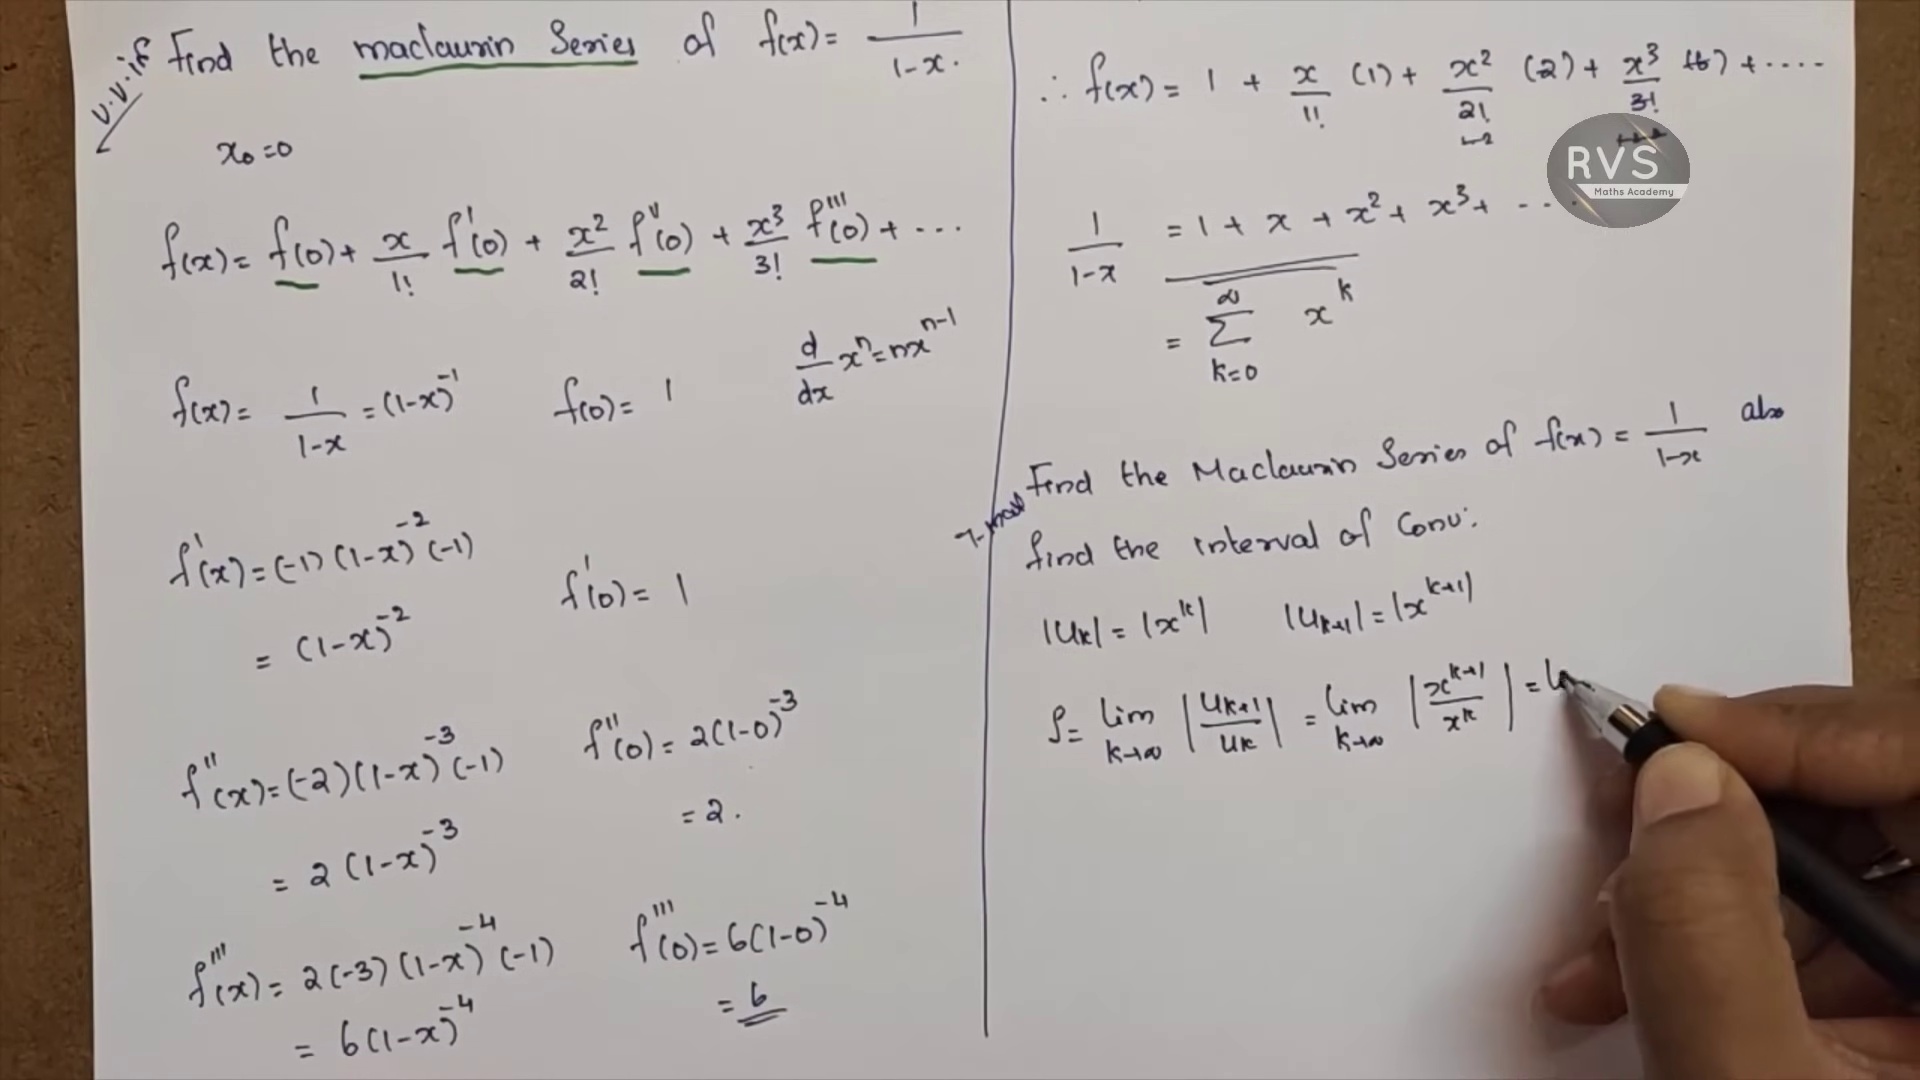 v.v.if Find the maclaurin Series of f(x) = 1/(1-x).
x₀=0
f(x) = f(0) + x/1! f'(0) + x²/2! f''(0) + x³/3! f'''(0) + ...
d/dx xⁿ = nxⁿ⁻¹
f(x) = 1/(1-x) = (1-x)⁻¹ f(0) = 1
f'(x) = (-1)(1-x)⁻²(-1)
= (1-x)⁻² f'(0) = 1
f''(x) = (-2)(1-x)⁻³(-1) f''(0) = 2(1-0)⁻³
= 2(1-x)⁻³ = 2.
f'''(x) = 2(-3)(1-x)⁻⁴(-1) f'''(0) = 6(1-0)⁻⁴
= 6(1-x)⁻⁴ = 6
∴ f(x) = 1 + x/1! (1) + x²/2! (2) + x³/3! (6) + ....
RVS
Maths Academy
1/(1-x) = 1 + x + x² + x³ + ....
= ∞ Σ k=0 xᵏ
Find the Maclaurin Series of f(x) = 1/(1-x) also
find the interval of Conv:
|uₖ| = |xᵏ| |uₖ₊₁| = |xᵏ⁺¹|
ρ = lim k→∞ |uₖ₊₁/uₖ| = lim k→∞ |xᵏ⁺¹/xᵏ| =